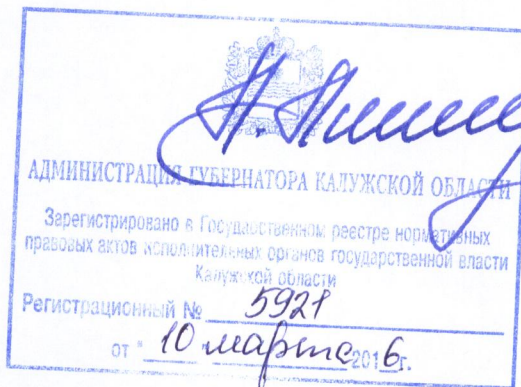 АДМИНИСТРАЦИЯ ГУБЕРНАТОРА КАЛУЖСКОЙ ОБЛАСТИ
Зарегистрировано в Государственном реестре нормативных
правовых актов исполнительных органов государственной власти
Калужской области
Регистрационный № 5921
от " 10 марта 2016г.